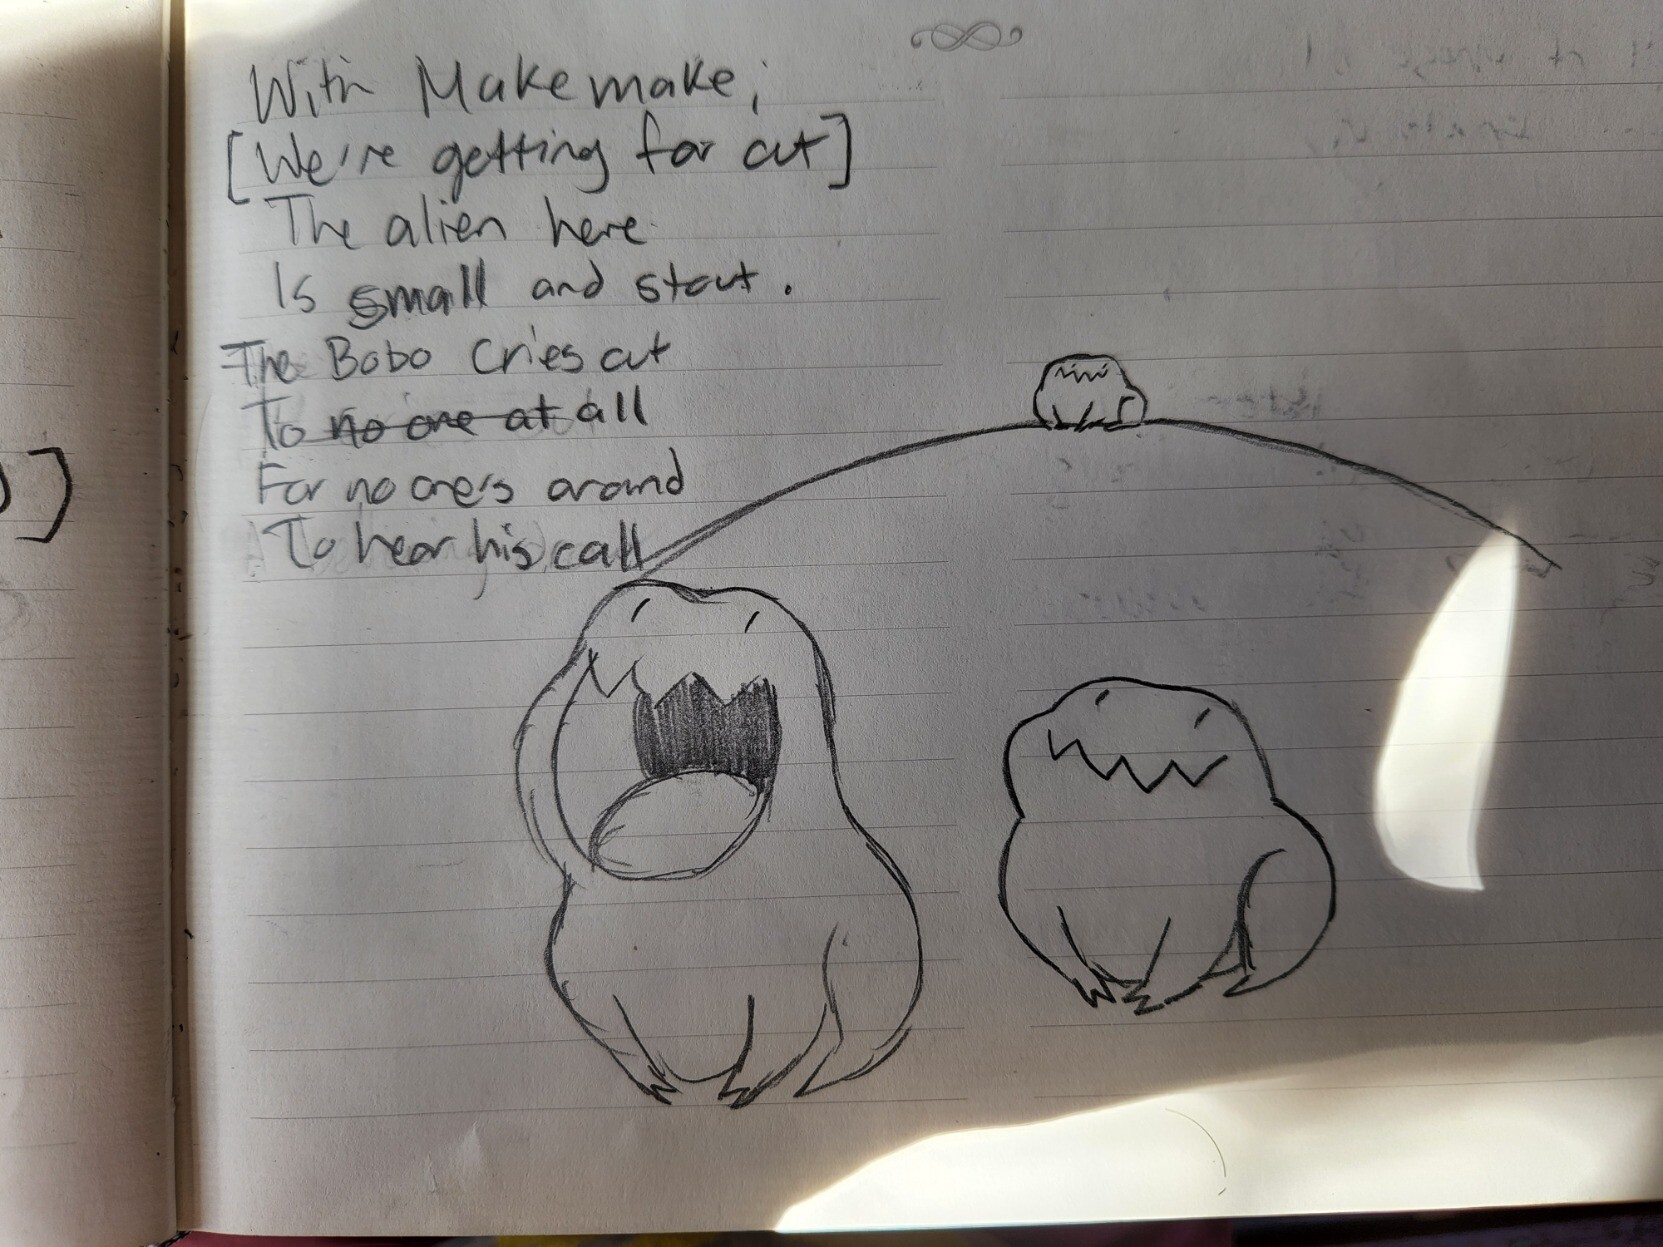 With Makemake,
[We're getting far out]
The alien here
Is small and stout.
The Bobo cries out
To no one at all
For no one's around
To hear his call
]